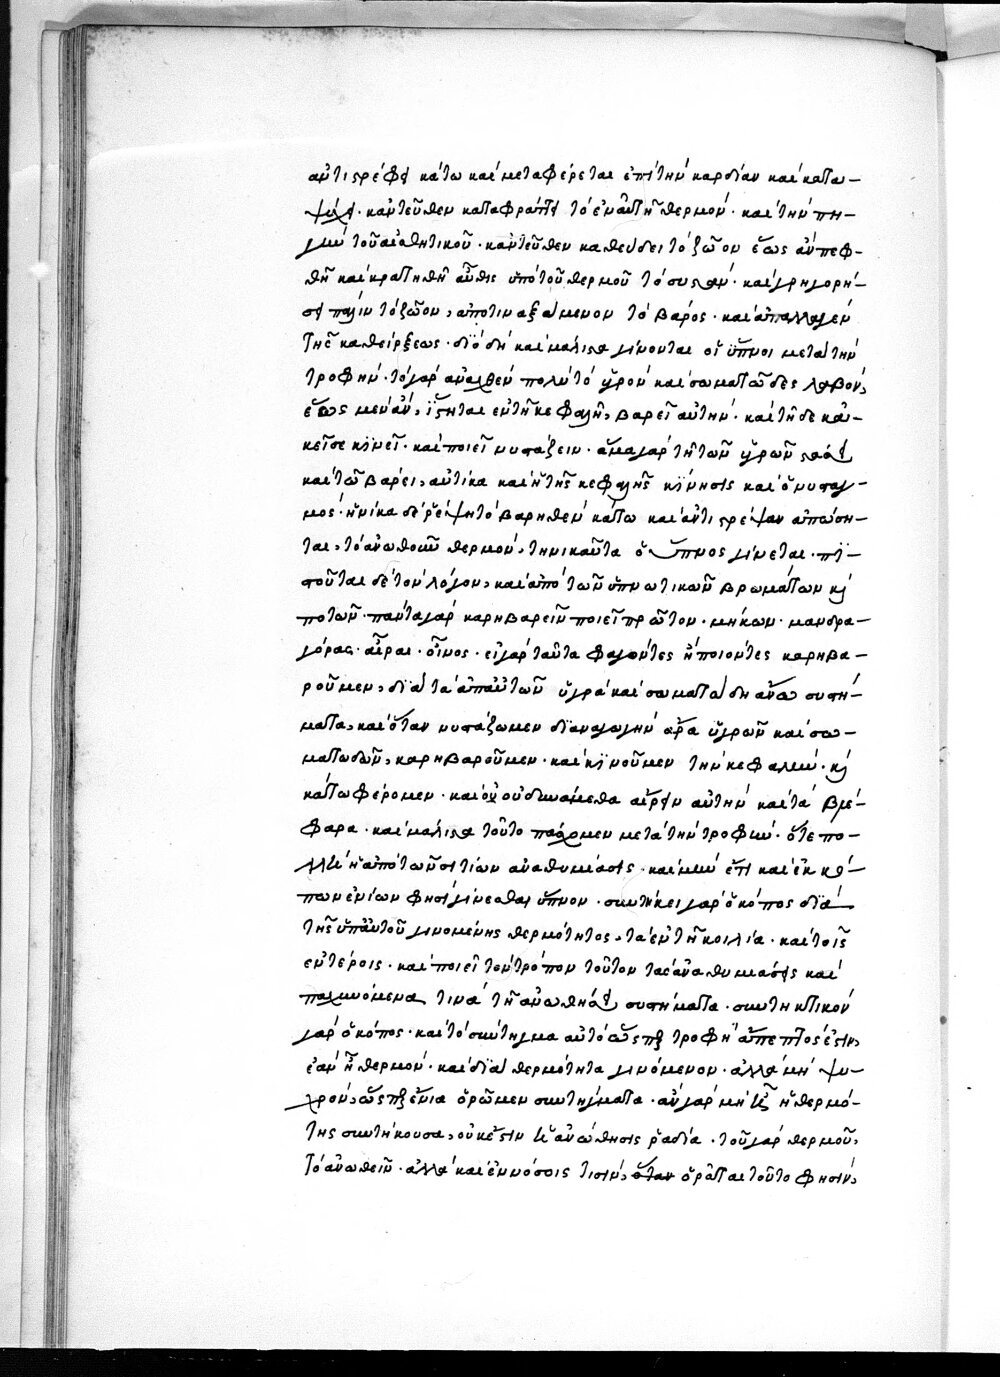 ἀντιστρέφει κάτω καὶ μεταφέρεται ἐπὶ τὴν καρδίαν καὶ καταψύχει·
κἀντεῦθεν καταφράττει τὸ ἐν αὐτῇ θερμόν· καὶ τὴν πη-
γὴν τοῦ αἰσθητικοῦ· κἀντεῦθεν καθεύδει τὸ ζῶον ἕως ἂν πεφ-
θῇ καὶ κρατηθῇ αὖθις ὑπὸ τοῦ θερμοῦ τὸ συστὰν· καὶ γρηγορή-
σει πάλιν τὸ ζῶον, ἀποτιναξάμενον τὸ βάρος· καὶ ἀπαλλαγὲν
τῆς καθείρξεως· διὸ δὴ καὶ μάλιστα γίνονται οἱ ὕπνοι μετὰ τὴν
τροφήν· τὸ γὰρ ἀναχθὲν πολὺ τὸ ὑγρὸν καὶ σωματῶδες λαβὸν,
ἕως μὲν ἂν, ἵσηται ἐν τῇ κεφαλῇ, βαρεῖ αὐτήν· καὶ τῇδε κἀ-
κεῖσε κινεῖ· καὶ ποιεῖ νυστάζειν· ἅμα γὰρ τῇ τῶν ὑγρῶν στάσει
καὶ τῷ βάρει, αὐτίκα καὶ ἡ τῆς κεφαλῆς κίνησις καὶ ὁ νυσταγ-
μός· ἡνίκα δὲ ῥέψῃ τὸ βαρηθὲν κάτω καὶ ἀντιστρέψαν ἀπώση-
ται, τὸ ἀνωθοῦν θερμὸν, τηνικαῦτα ὁ ὕπνος γίνεται· πι-
στοῦται δὲ τὸν λόγον, καὶ ἀπὸ τῶν ὑπνωτικῶν βρωμάτων κ(αὶ)
ποτῶν· πάντα γὰρ καρηβαρεῖν ποιεῖ πρῶτον· μήκων· μανδρα-
γόρας· αἶραι· οἶνος· εἰ γὰρ ταῦτα φαγόντες ἢ πιόντες καρηβα-
ροῦμεν, διὰ τὰ ἀπ' αὐτῶν ὑγρὰ καὶ σωματώδη ἄνω συστή-
ματα, καὶ ὅταν νυστάζωμεν δι' ἀναγωγὴν ἄρα ὑγρῶν καὶ σω-
ματωδῶν, καρηβαροῦμεν· καὶ κινοῦμεν τὴν κεφαλὴν· κ(αὶ)
κάτω φέρομεν· καὶ οὐ δυνάμεθα αἴρειν αὐτὴν καὶ τὰ βλέ-
φαρα· καὶ μάλιστα τοῦτο πάσχομεν μετὰ τὴν τροφὴν· ὅτε πο-
λλὴ ἡ ἀπὸ τῶν σιτίων ἀναθυμίασις· καὶ μὴν ἔτι καὶ ἐκ κό-
πων ἐνίων φησὶ γίνεσθαι ὕπνον· συντήκει γὰρ ὁ κόπος διὰ
τῆς ὑπ' αὐτοῦ γινομένης θερμότητος, τὰ ἐν τῇ κοιλίᾳ· καὶ τοῖς
ἐντέροις· καὶ ποιεῖ τὸν τρόπον τοῦτον τὰς ἀναθυμιάσεις καὶ
παχυνόμενα τινὰ τῇ ἀνωθήσει συστήματα· συντηκτικὸν
γὰρ ὁ κόπος· καὶ τὸ σύντηγμα αὐτὸ ὥσπερ τροφὴ ἄπεπτος ἐστὶν,
ἐὰν ᾖ θερμόν· καὶ διὰ θερμότητα γινόμενον· ἀλλὰ μὴ ψυ-
χρὸν, ὥσπερ ἔνια ὁρῶμεν συντήγματα· ἂν γὰρ μὴ ᾖ ἡ θερμό-
της συντήκουσα, οὐκ ἔστιν ἡ ἀνώθησις ῥαδία· τοῦ γὰρ θερμοῦ,
τὸ ἀνωθεῖν· ἀλλὰ καὶ ἐν νόσοις τισὶν, ὅταν ὁρᾶται τοῦτο φησὶν,